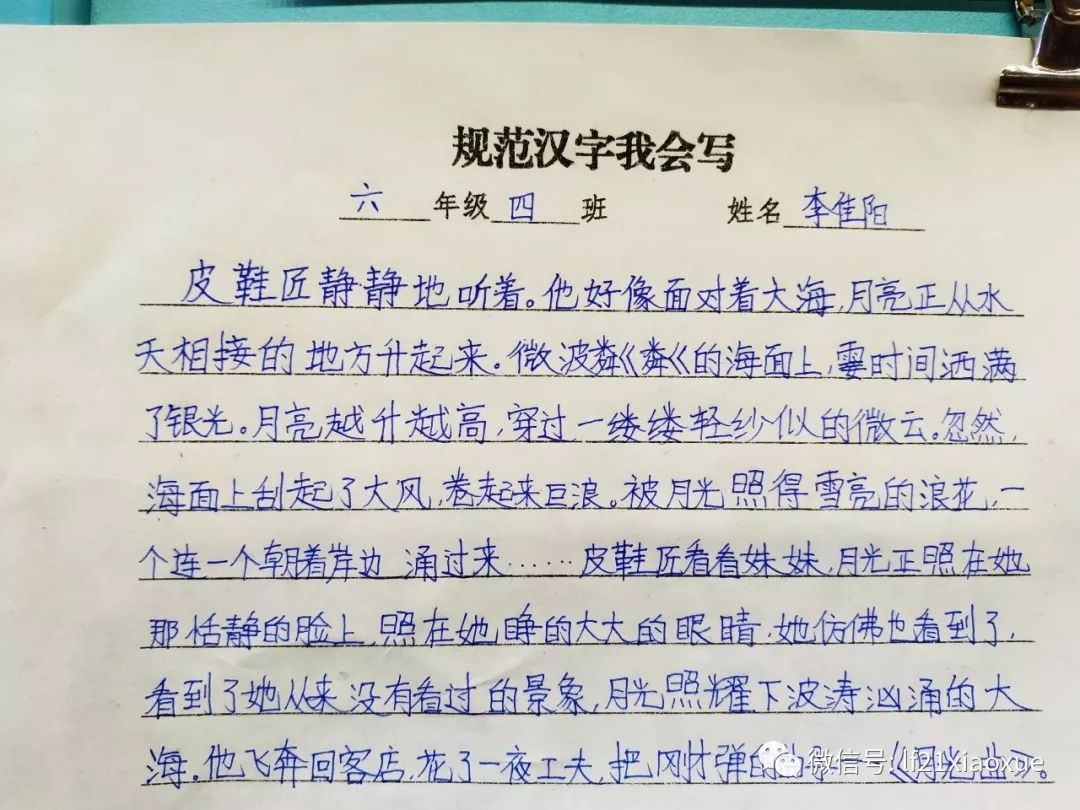 规范汉字我会写
六年级四班 姓名李佳阳
皮鞋匠静静地听着。他好像面对着大海,月亮正从水
天相接的地方升起来。微波粼粼的海面上,霎时间洒满
了银光。月亮越升越高,穿过一缕缕轻纱似的微云。忽然,
海面上刮起了大风,卷起来巨浪。被月光照得雪亮的浪花,一
个连一个朝着岸边 涌过来……皮鞋匠看看妹妹,月光正照在她
那恬静的脸上,照在她睁的大大的眼睛,她仿佛也看到了,
看到了她从来没有看过的景象,月光照耀下波涛汹涌的大
海。他飞奔回客店,花了一夜工夫,把刚才弹的曲子——《月光曲》。
微信号: lf21xiaoxue